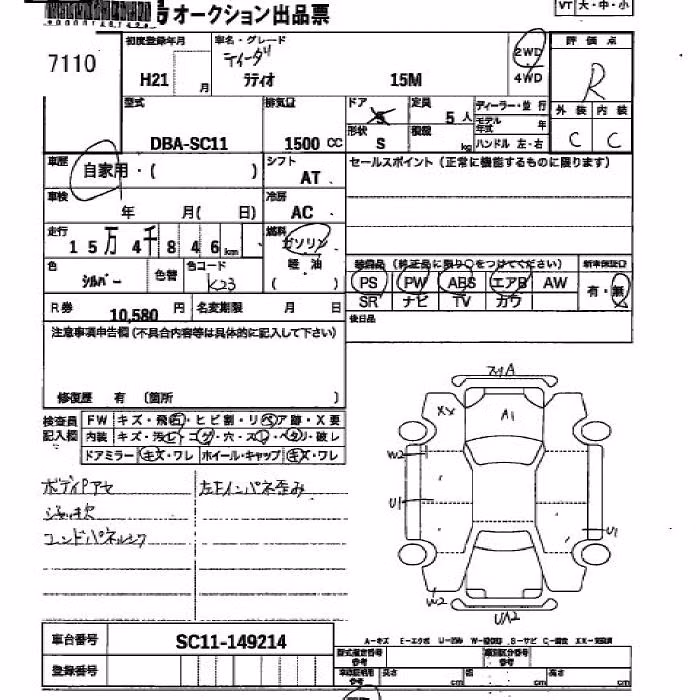 オークション出品票
VT 大・中・小
7110
初度登録年月 車名・グレード
ティーダ
2WD
4WD
評価点
R
H21 月 ラティオ 15M
型式 排気量 ドア 定員 5人 ディーラー・並行
外装 内装
モデル年式 年
C C
DBA-SC11 1500 CC
形状 S 積載 kg ハンドル 左・右
車歴 自家用・( )
シフト AT
セールスポイント (正常に機能するものに限ります)
車検 年 月( 日)
冷房 AC
走行 15万4千846km
燃料 ガソリン
軽油
( )
装備品 (純正品に限り○をつけてください) 新車保証書
PS PW ABS エアB AW 有・無
SR ナビ TV カワ
色 シルバー 色替 色コード K23
後日品
R券 10,580 円 名変期限 月 日
注意事項申告欄(不具合内容等は具体的に記入して下さい)
修復歴 有 (箇所
検査員記入欄
FW キズ・飛石・ヒビ割・リペア跡・X要
内装 キズ・汚レ・コゲ・穴・スレ・ヘタリ・破レ
ドアミラー キズ・ワレ ホイール・キャップ キズ・ワレ
ボディPアセ 左Fインパネ歪み
ジャッキ欠
A
XX A1
W2
U1
U1
W2
UA2
車台番号 SC11-149214
A-キズ E-エクボ
登録番号
型式指定番号 参考 類別区分番号 参考
長さ cm 幅 cm 高さ cm